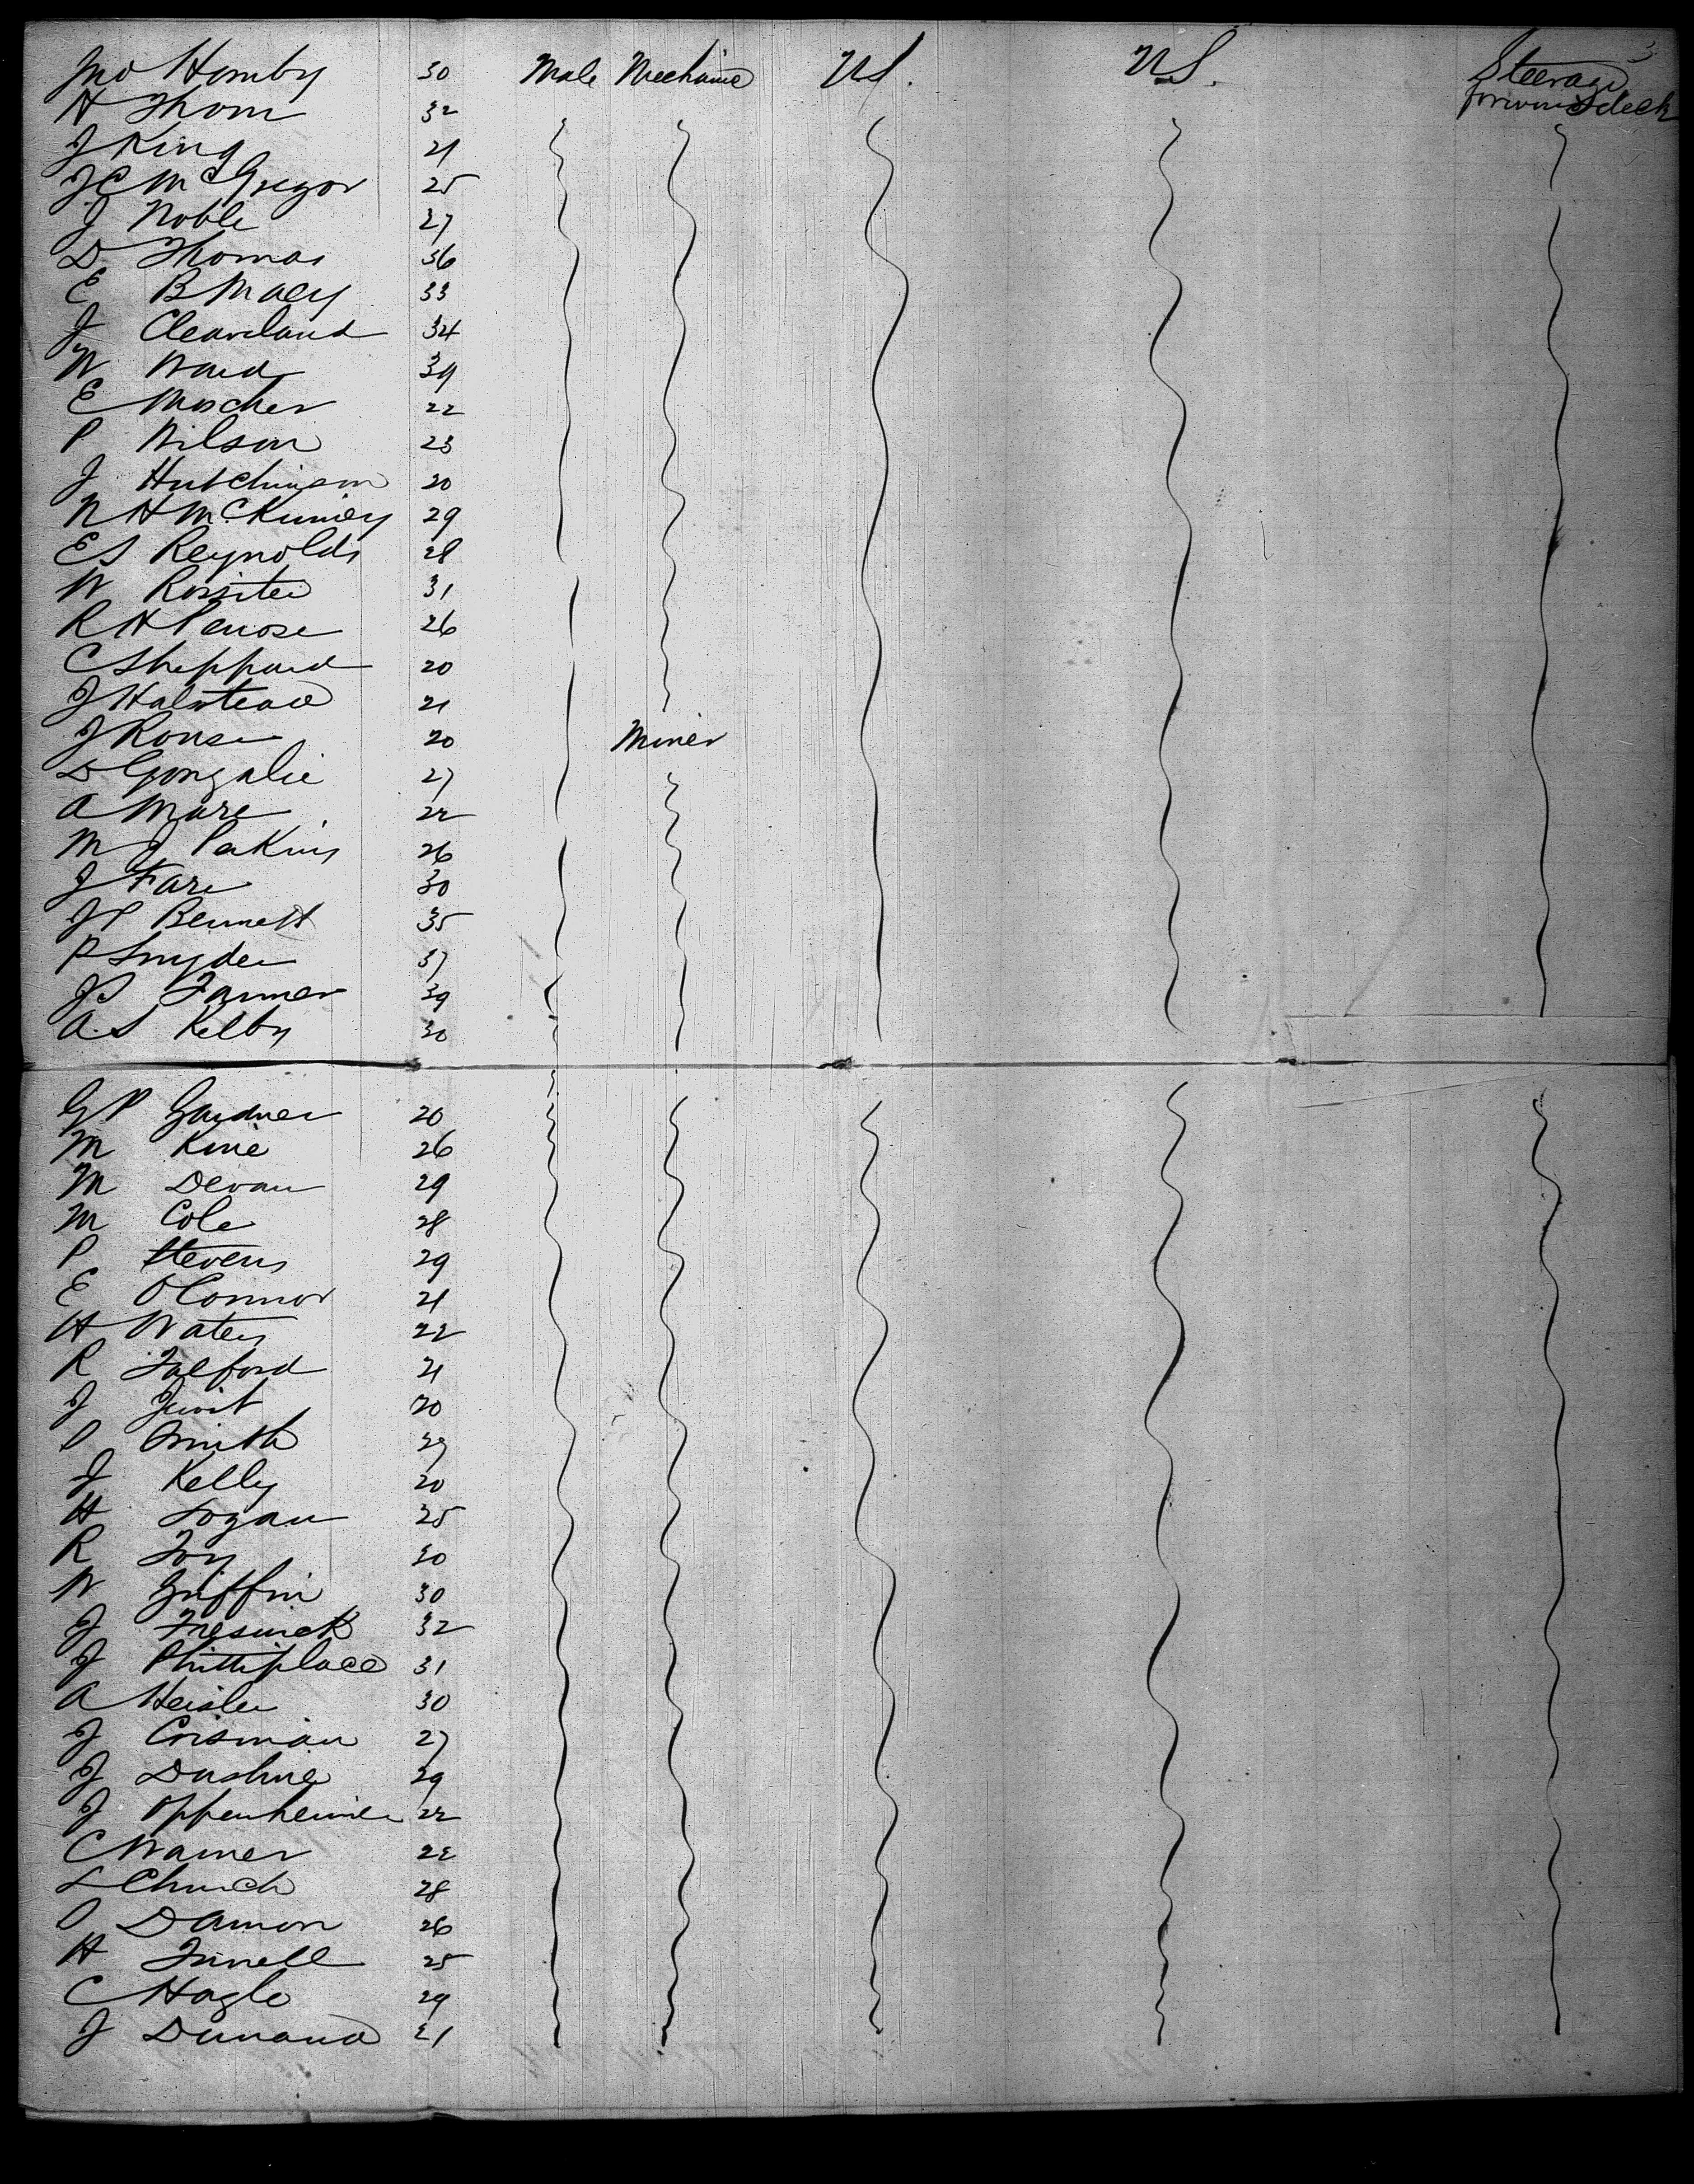 Jno Hornby 30 Male Mechanic US. US. Steerage
H Thom 32 forward deck
J King 21
J C McGregor 25
J Noble 27
D Thomas 36
E B Macy 33
J Cleaveland 34
W Ward 39
E Moscher 22
P Wilson 23
J Hutchinson 20
N H McKinney 29
E S Reynolds 28
W Rossiter 31
R H Penrose 26
C Sheppard 20
J Halstead 21
J Rouse 20 Miner
D Gonzalie 27
A Mare 22
M J Perkins 26
J Fare 30
J P Bennett 35
P Snyder 37
J S Farmer 39
A. S Kelby 30
G P Gardner 20
M Kine 26
M Devan 29
M Cole 28
P Stevens 29
E O'Connor 21
H Waters 22
R Talford 21
J Jewit 20
O Smith 29
J Kelly 20
H Logan 25
R Foy 30
W Griffin 30
J 32
J Phittiplace 31
A Heisler 30
J Crisman 27
J 29
J Oppenheimer 22
C Warner 22
L Church 28
O Damon 26
H 25
C Hagle 29
J Durand 21